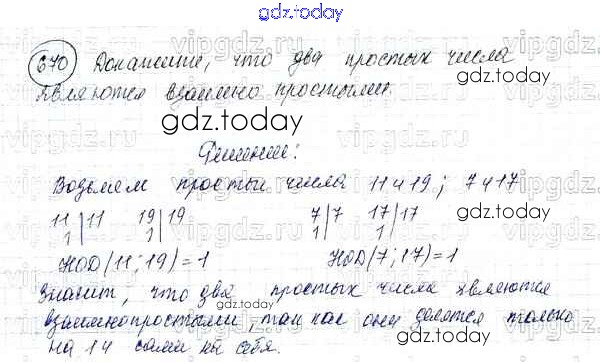 gdz.today
670 Докажите, что два простых числа
являются взаимно простыми.
gdz.today
gdz.today
Решение:
Возьмем простые числа 11 и 19; 7 и 17
gdz.today
11|11 19|19 7|7 17|17
1| 1| 1| 1|
НОД(11; 19)=1 НОД(7; 17)=1
gdz.today
Значит, что два простых числа являются
взаимнопростыми, так как они делятся только
на 1 и сами на себя.
gdz.today